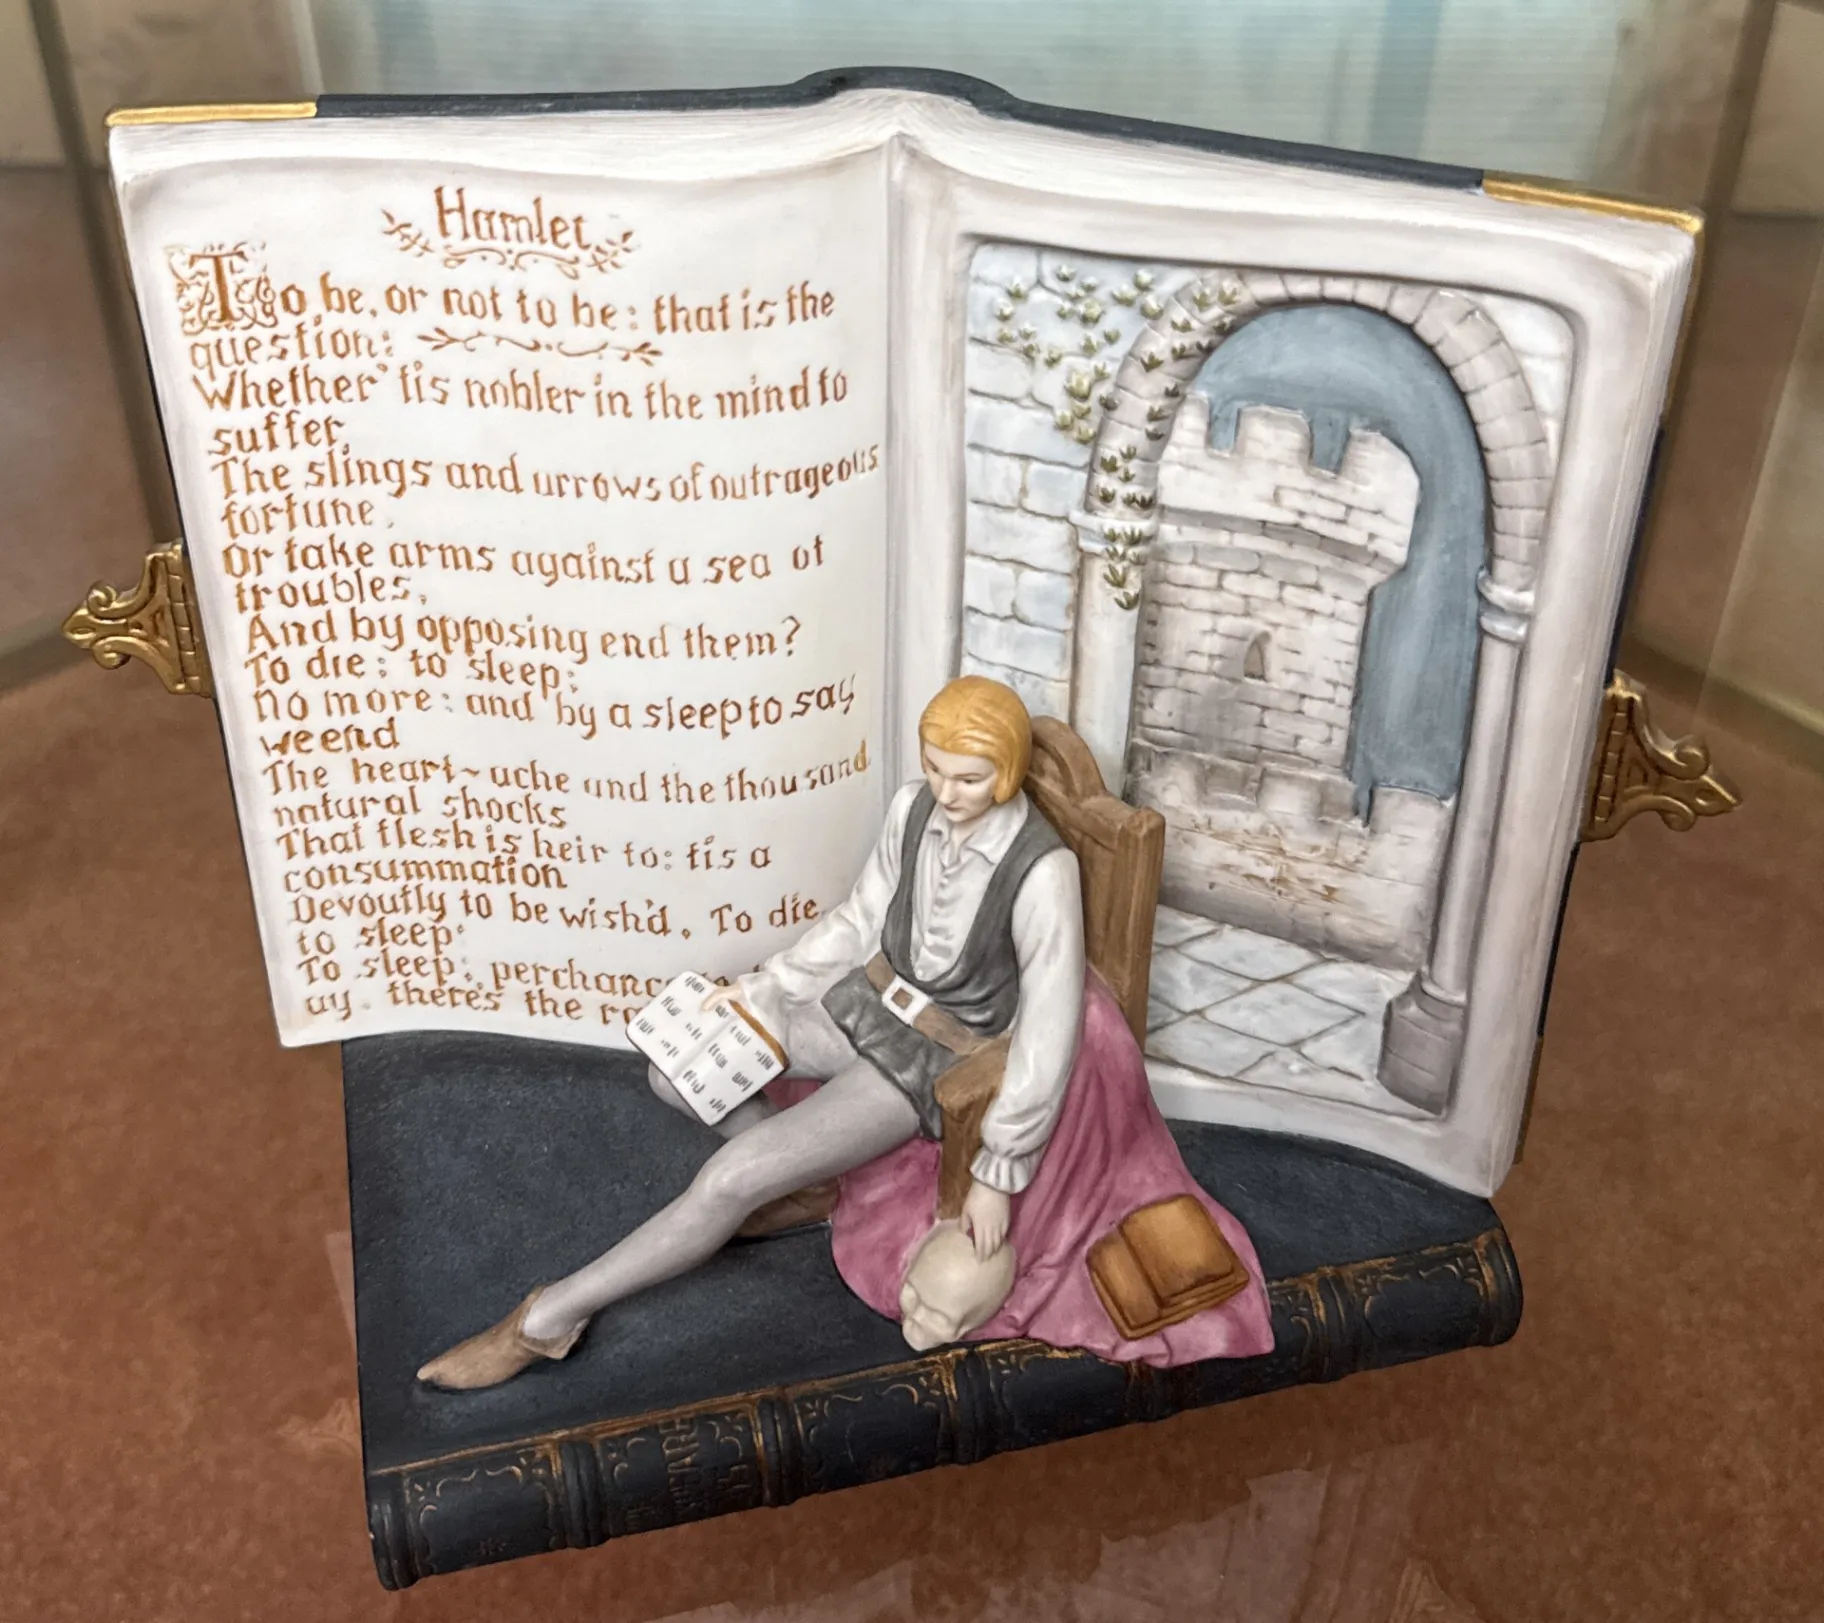 Hamlet
To be, or not to be: that is the
question:
Whether 'tis nobler in the mind to
suffer,
The slings and arrows of outrageous
fortune,
Or take arms against a sea of
troubles,
And by opposing end them?
To die: to sleep;
no more: and by a sleep to say
we end
The heart-ache and the thousand
natural shocks
That flesh is heir to: tis a
consummation
Devoutly to be wish'd. To die
to sleep:
To sleep: perchanc
ay. there's the